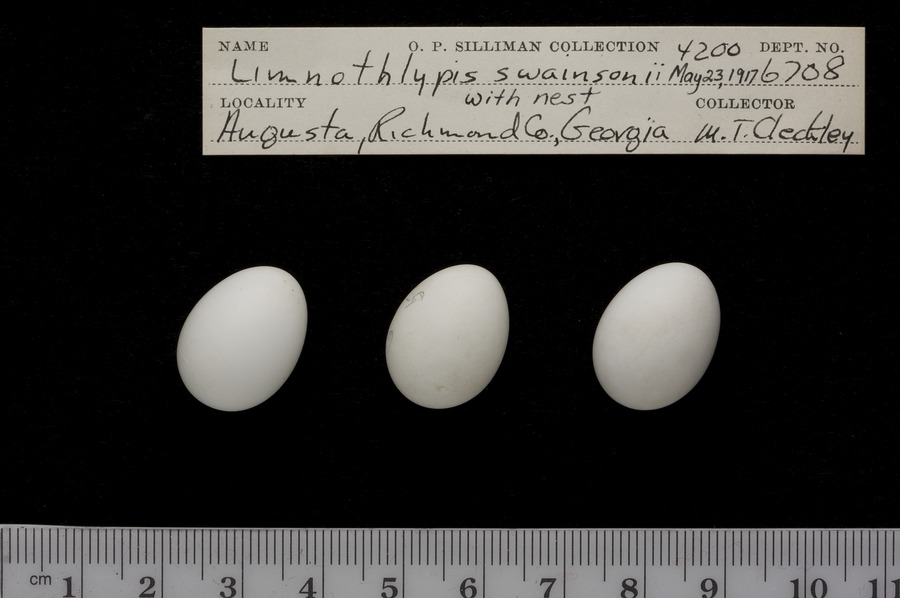 NAME O. P. SILLIMAN COLLECTION 4200 DEPT. NO.
Limnothlypis swainsonii May 23, 1917 6708
LOCALITY with nest COLLECTOR
Augusta, Richmond Co., Georgia M. T. Cleckley
cm 1 2 3 4 5 6 7 8 9 10 11